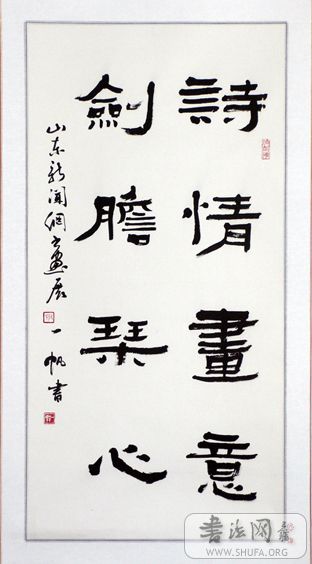 詩情畫意
劍膽琹心
山东新闻網书画展
一帆書
书法网
WWW.SHUFA.ORG